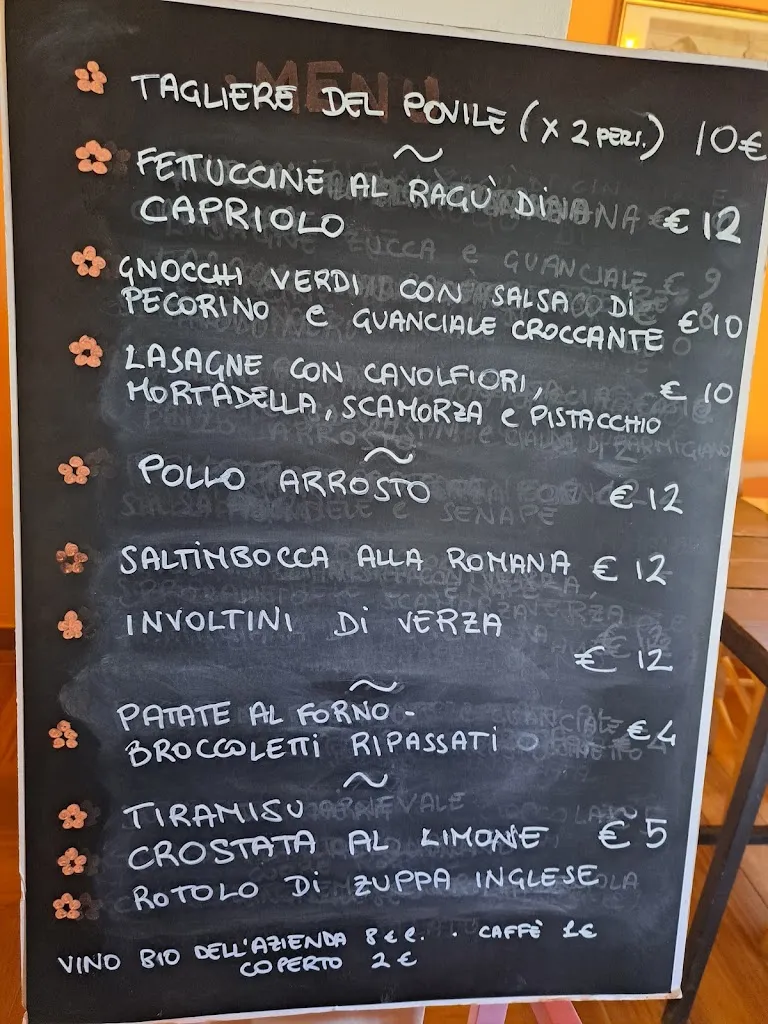 MENU
TAGLIERE DEL POVILE (x 2 PERS.) 10€
~
FETTUCCINE AL RAGÙ DI
CAPRIOLO € 12
GNOCCHI VERDI CON SALSA DI
PECORINO e GUANCIALE CROCCANTE € 10
LASAGNE CON CAVOLFIORI, € 10
MORTADELLA, SCAMORZA e PISTACCHIO
~
POLLO ARROSTO € 12
SALTIMBOCCA ALLA ROMANA € 12
INVOLTINI Di VERZA
€ 12
~
PATATE AL FORNO -
BROCCOLETTI RIPASSATI € 4
~
TIRAMISU
CROSTATA AL LIMONE € 5
ROTOLO Di ZUPPA INGLESE
VINO BIO DELL'AZIENDA 8 € . CAFFÈ 1€
COPERTO 2 €